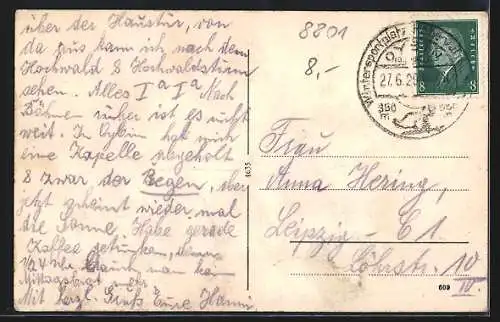 über der Haustür, von
da aus kann ich nach dem
Hochwald & Hochwaldturm
sehen. Alles Ia Ia Nach
Böhmen rüber ist es nicht
weit. In Oybin hat mich
eine Kapelle abgeholt
& zwar der Regen, aber
jetzt scheint wieder mal
die Sonne. Habe gerade
Kaffee getrunken,
Mit herzl. Gruß Eure Hanni
8801
8,-
Wintersportplatz
OYBIN
27.6.29
350
550
m
8 8
1635
Frau
Anna Hering,
Leipzig - C1
Löhrstr. 10
IV.
609